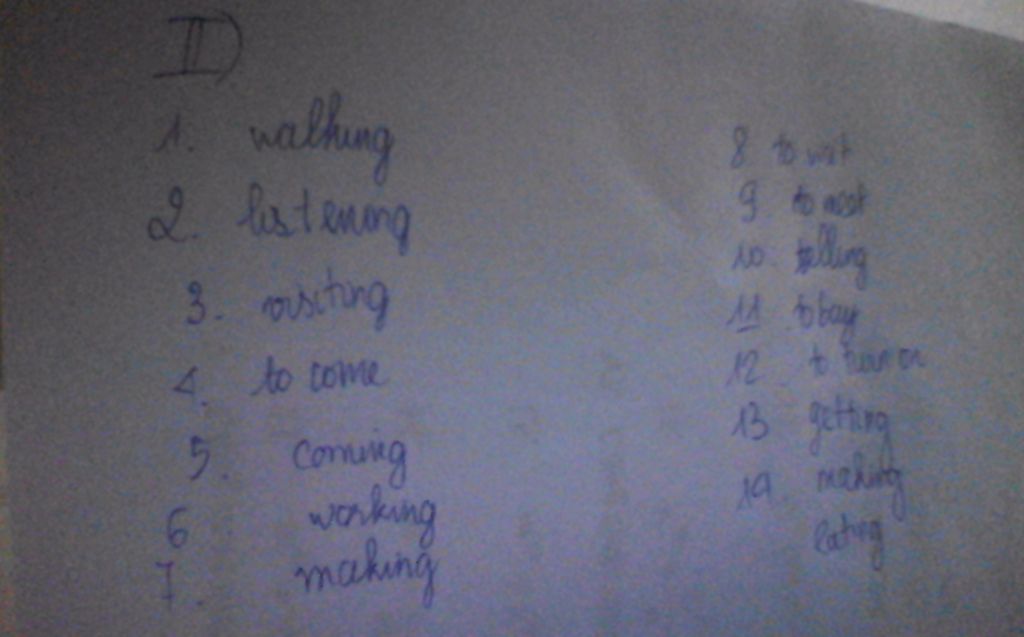 II)
1. walking
2. listening
3. visiting
4. to come
5. coming
6 working
7. making
8 to wait
9. to meet
10. telling
11 to buy
12. to turn on
13 getting
14. making
eating